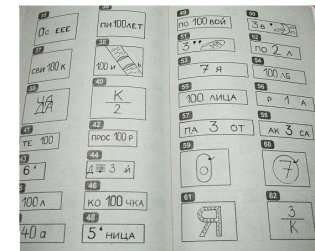 35
Ос ЕЕЕ
36
ПИ 100 ЛЕТ
37
СВИ 100 К
38
100 И Ь
39
40
К
2
41
ТЕ 100
42
ПРОС 100 Р
6
44
Д 3 Й
100 Л
46
КО 100 ЧКА
40 а
48
5 ' НИЦА
49
ПО 100 ВОЙ
50
3 В
51
3 "
52
ПО 2 Л
53
7 Я
54
100 ЛБ
55
100 ЛИЦА
56
Р 1 А
57
ПА 3 ОТ
58
АК 3 СА
59
О
60
7
61
Я
62
3
К